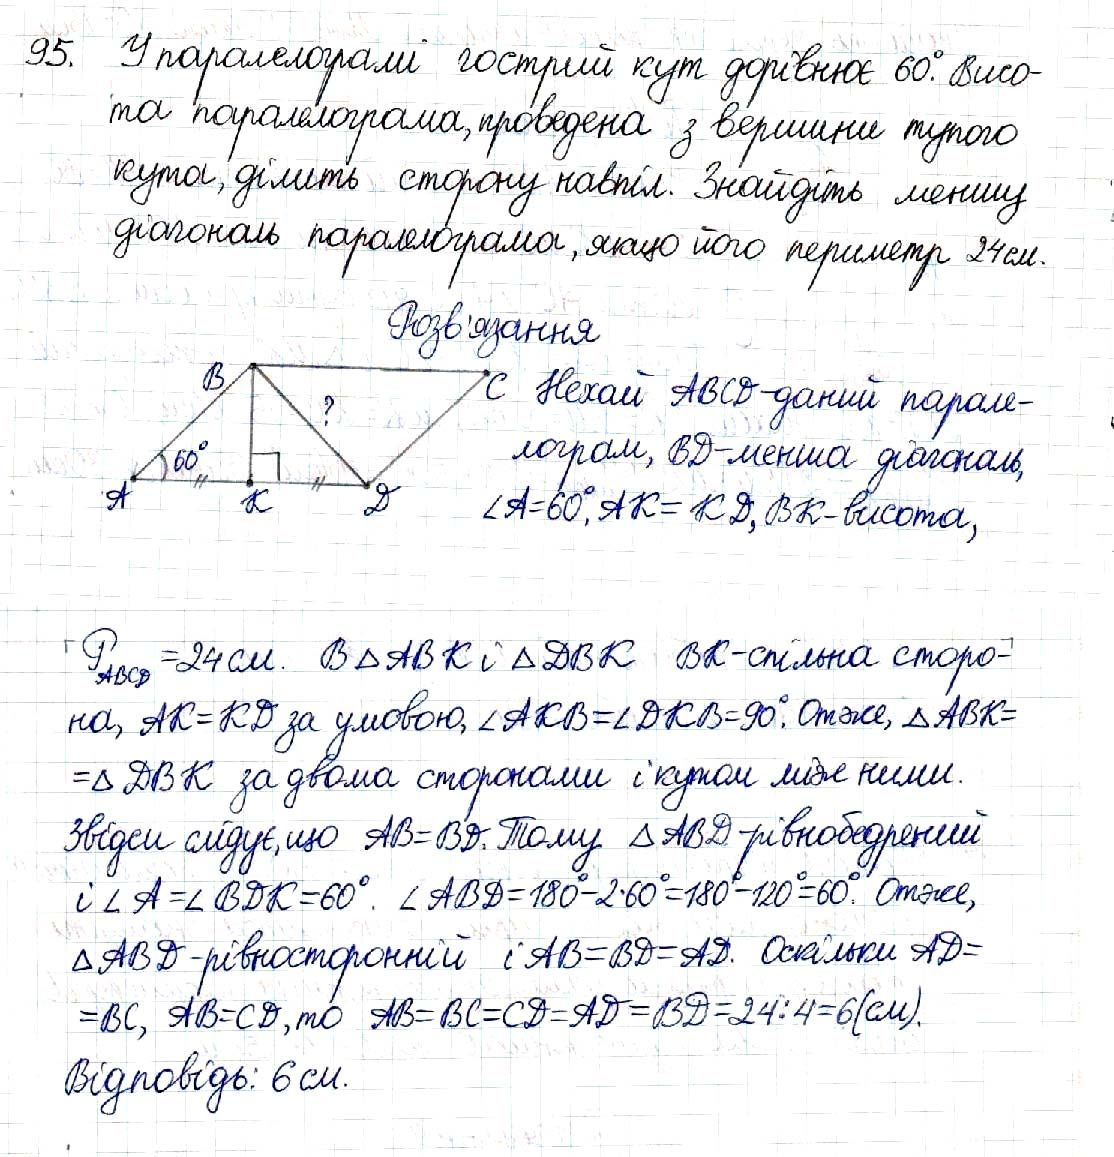 95. У паралелограмі гострий кут дорівнює 60°. Висо-
та паралелограма, проведена з вершини тупого
кута, ділить сторону навпіл. Знайдіть меншу
діагональ паралелограма, якщо його периметр 24 см.
Розв'язання
B
C
?
60°
A
K
D
Нехай ABCD-даний парале-
лограм, BD-менша діагональ,
∠A=60°, AK=KD, BK-висота,
P_ABCD =24 см. В △ABK і △DBK BK-спільна сторо-
на, AK=KD за умовою, ∠AKB=∠DKB=90°. Отже, △ABK=
=△DBK за двома сторонами і кутом між ними.
Звідси слідує, що AB=BD. Тому △ABD-рівнобедрений
і ∠A=∠BDK=60°. ∠ABD=180°-2·60°=180°-120°=60°. Отже,
△ABD-рівносторонній і AB=BD=AD. Оскільки AD=
=BC, AB=CD, то AB=BC=CD=AD=BD=24:4=6(см).
Відповідь: 6 см.